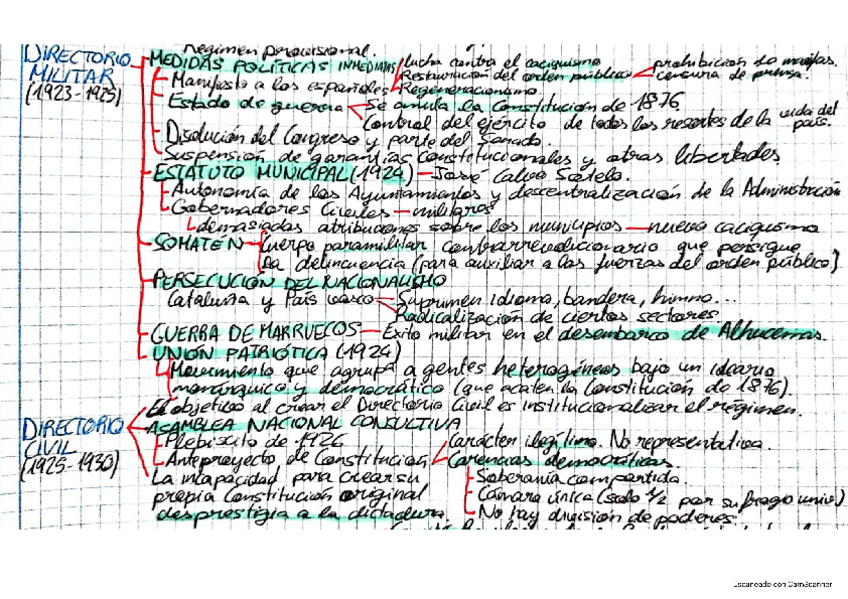 Régimen provisional.
DIRECTORIO MILITAR (1923-1925)
MEDIDAS POLÍTICAS INMEDIATAS
lucha contra el caciquismo
Restauración del orden público
prohibición de
censura de prensa.
Regeneracionismo
Manifiesto a los españoles
Estado de guerra
Se anula la Constitución de 1876
Control del ejército de todos los resortes de la vida del país.
Disolución del Congreso y parte del Senado.
Suspensión de garantías constitucionales y otras libertades
ESTATUTO MUNICIPAL (1924) — José Calvo Sotelo.
Autonomía de los Ayuntamientos y descentralización de la Administración
Gobernadores Civiles — militares
demasiadas atribuciones sobre los municipios — nuevo caciquismo
SOMATEN
Cuerpo paramilitar contrarrevolucionario que persigue
la delincuencia (para auxiliar a las fuerzas del orden público)
PERSECUCIÓN DEL NACIONALISMO
Cataluña y País vasco
Suprimen idioma, bandera, himno...
Radicalización de ciertos sectores.
GUERRA DE MARRUECOS — Exito militar en el desembarco de Alhucemas.
UNIÓN PATRIÓTICA (1924)
Movimiento que agrupa a gentes heterogéneas bajo un ideario
monárquico y democrático (que acaten la Constitución de 1876).
DIRECTORIO CIVIL (1925-1930)
El objetivo al crear el Directorio Civil es institucionalizar el régimen.
ASAMBLEA NACIONAL CONSULTIVA
Plebiscito de 1926
Anteproyecto de Constitución
Carácter ilegítimo. No representativa.
Carencias democráticas.
Soberanía compartida.
Cámara única (solo 1/2 por sufragio univ.)
No hay división de poderes.
La incapacidad para crear su
propia Constitución original
desprestigia a la dictadura.
Escaneado con CamScanner